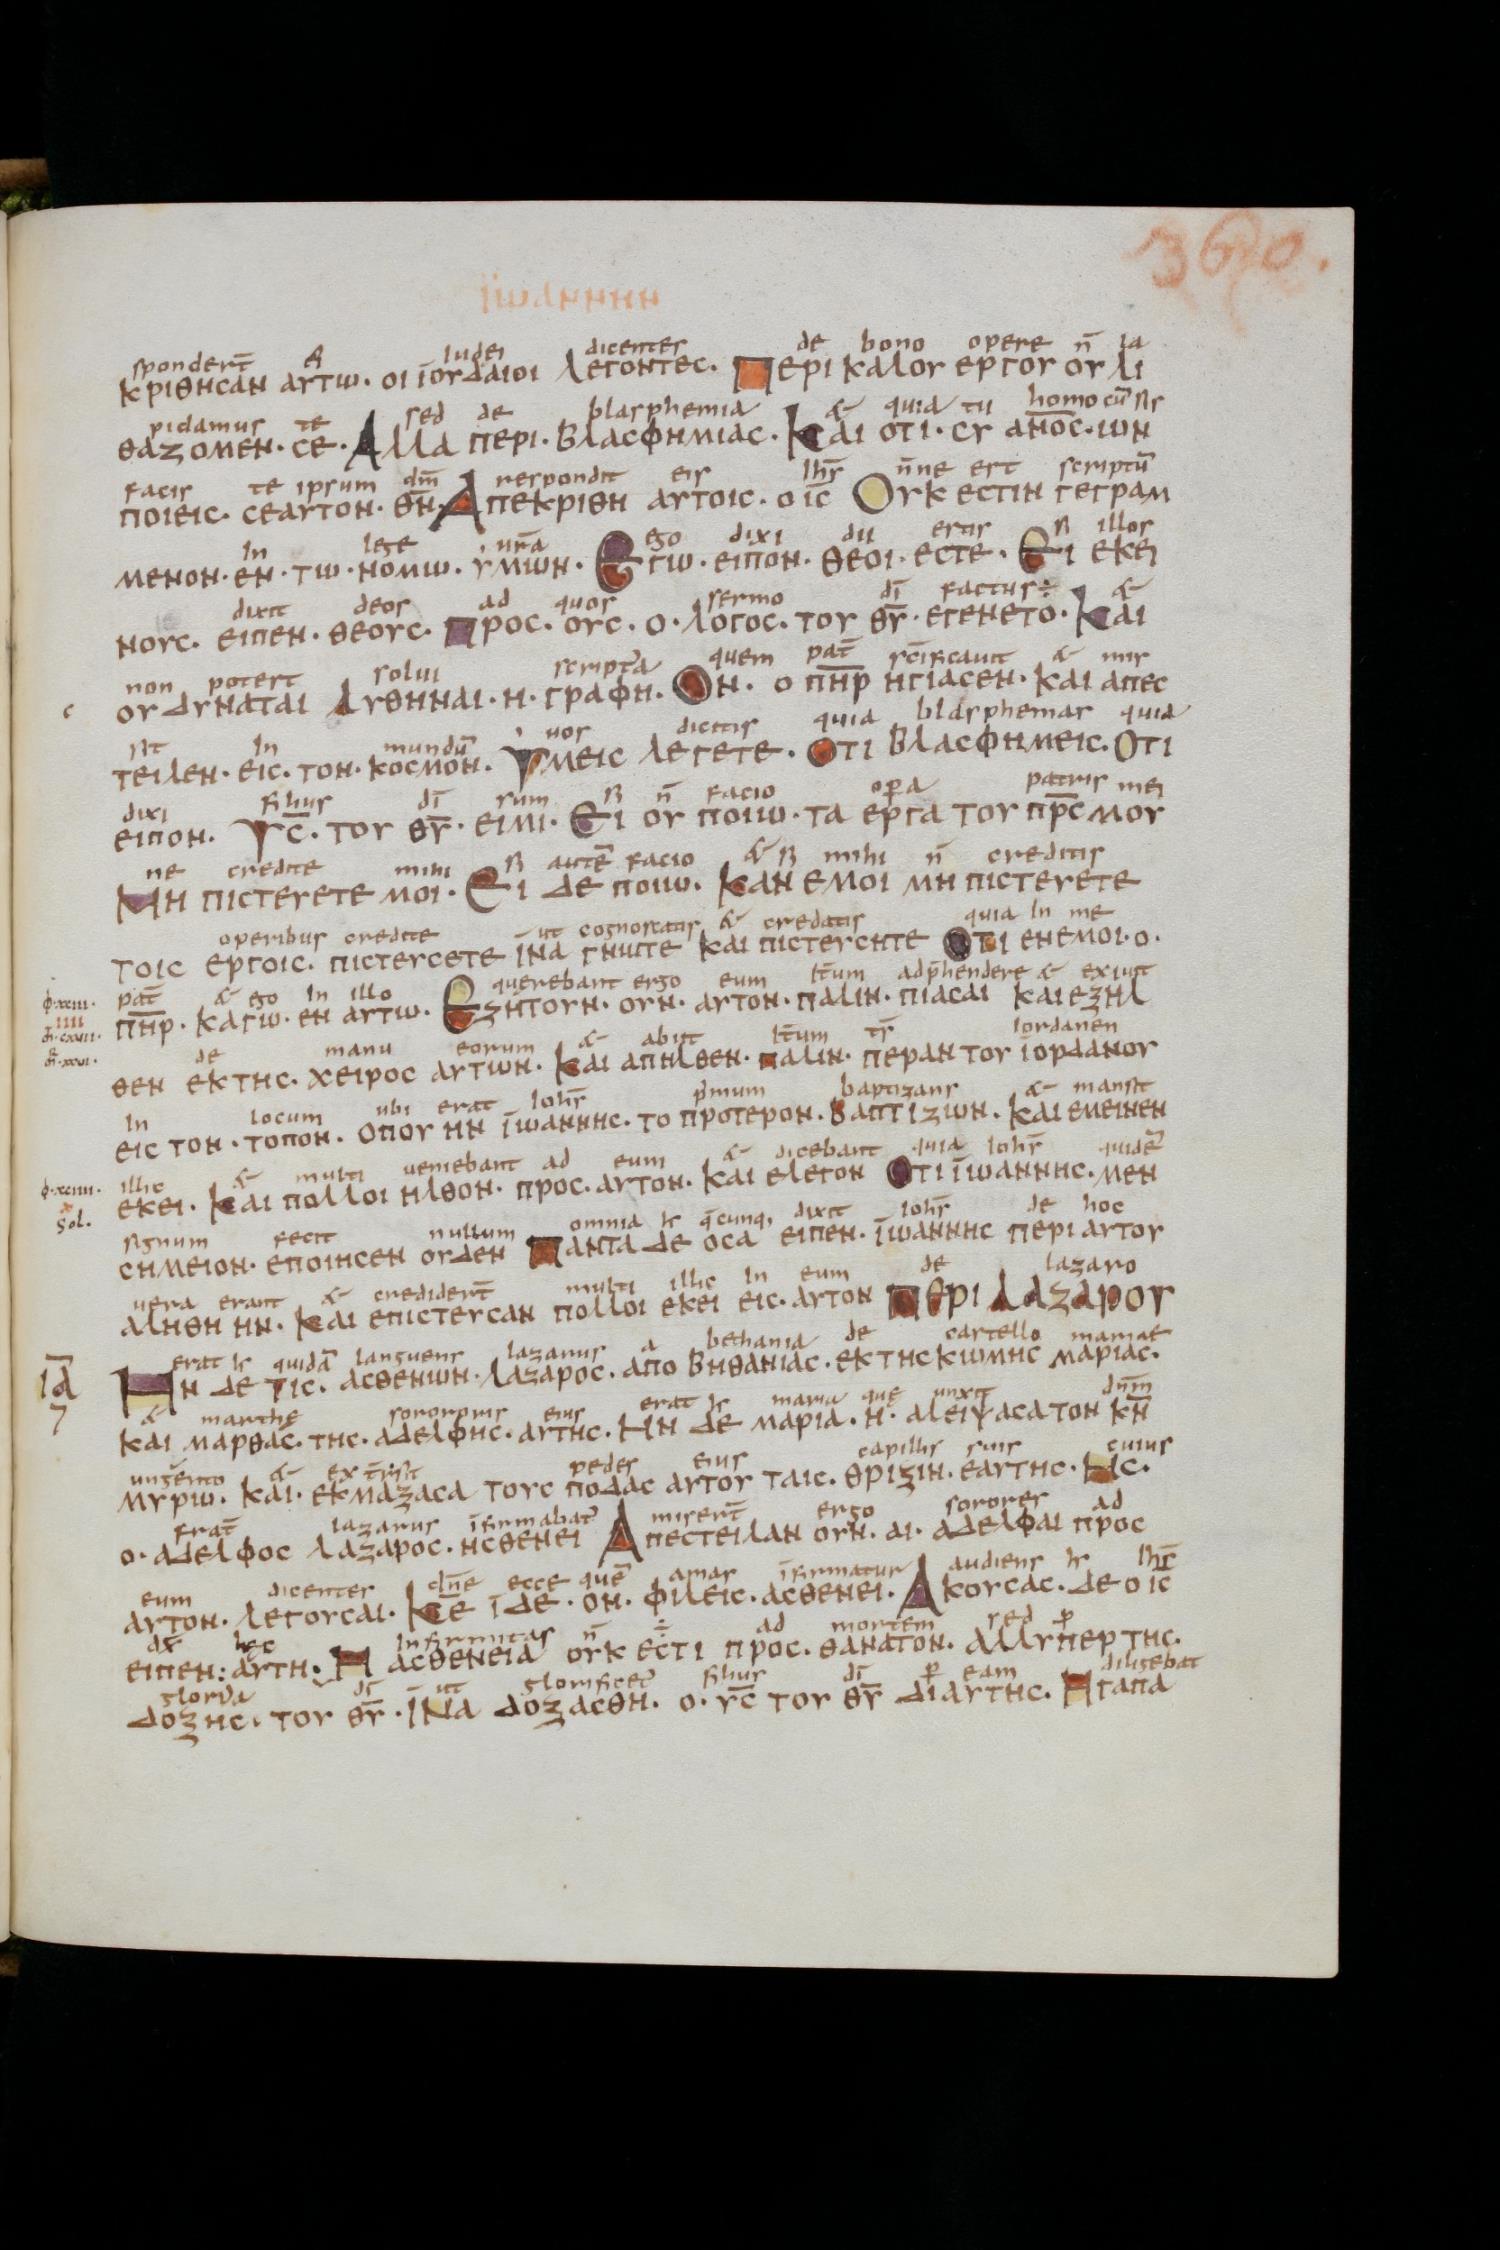 360.
ϊωαннηн
sponderт̄ ei iudei dicentes de bono opere n̄ la
κριθησαν αυτω · οι ϊουδαιοι λεγοντες · Περι καλου εργου ου λι
pidamus te sed de blasphemia & quia tu homo cū sis
θαζομεν · σε · Αλλα περι · βλασφημιας · Και οτι · συ αν̄ος · ιων
facis te ipsum dm̄ respondit eis ihs̄ n̄ne est scriptū
ποιεις · σεαυτον · θ̄ν · Απεκριθη αυτοις · ο ις̄ Ουκ εστιν γεγραμ
in lege ur̄a ego dixi dii estis si illos
μενον · εν · τω · νομω · ϋμων · Εγω · ειπον · θεοι · εστε · Ει εκει
dixit deos ad quos sermo dī factus ÷ &
νους · ειπεν · θεους · Προς · ους · ο · λογος · του θ̄υ · εγενετο · Και
non potest solui script̄a quem pat̄ sc̄ificauit & mis
ου δυναται λυθηναι · η · γραφη · Ον · ο π̄ηρ ηγιασεν · και απες
sit in mundū uos dicitis quia blasphemas quia
τειλεν · εις · τον · κοσμον · Υμεις λεγετε · Οτι βλασφημεις · Οτι
dixi filius dī sum si n̄ facio op̄a patris mei
ειπον · Ῡς · του θ̄υ · ειμι · Ει ου ποιω · τα εργα του π̄ρς μου
ne credite mihi si autē facio & si mihi n̄ creditis
Μη πιστευετε μοι · Ει δε ποιω · Καν εμοι μη πιστευετε
operibus credite ut cognoscatis & credatis quia in me
τοις εργοις · πιστευσετε ϊνα γνωτε και πιστευσητε Οτι εν εμοι · ο ·
pat̄ & ego in illo querebant ergo eum it̄um adp̄hendere & exiuit
π̄ηρ · καγω · εν αυτω · Εζητουν · ουν · αυτον · παλιν · πιασαι και εξηλ
de manu eorum & abiit it̄um tr̄ iordanen
θεν εκ της · χειρος αυτων · Και απηλθεν · παλιν · περαν του ϊορδανου
in locum ubi erat ioh̄s p̄mum baptizans & mansit
εις τον · τοπον · οπου ην ϊωαννης · το προτερον · Βαπτιζων · Και εμεινεν
illic & multi ueniebant ad eum & dicebant quia ioh̄s quidē
εκει · Και πολλοι ηλθον · προς · αυτον · Και ελεγον Οτι ϊωαννης · μεν
signum fecit nullum omnia h q̄cunq; dixit ioh̄s de hoc
σημειον · εποιησεν ουδεν Παντα δε οσα ειπεν · ϊωαννης περι αυτου
uera erant & credider̄t multi illic in eum de lazaro
αληθη ην · Και επιστευσαν πολλοι εκει εις · αυτον Περι Λαζαρου
ΙᾹ
erat h quidā languens lazarus a bethania de castello mariae
Ην δε τις · ασθενων · Λαζαρος · απο Βηθανιας · εκ της κωμης μαριας ·
& marthe sororpius eius erat h maria que unxit dn̄m
και μαρθας · της · αδελφης · αυτης · Ην δε μαρια · η · αλειψασα τον κ̄ν
ungento & extersit pedes eius capillis suis cuius
μυρω · και · εκμαζασα τους ποδας αυτου ταις · θριξιν · εαυτης · Ης ·
frat̄ lazarus īfirmabat̄ miser̄t ergo sorores ad
ο · αδελφος λαζαρος · ησθενει Απεστειλαν ουν · αι · αδελφαι προς
eum dicentes dn̄e ecce quē amas īfirmatur audiens h ihs̄
αυτον · λεγουσαι · Κ̄ε ϊδε · ον · φιλεις · ασθενει · Ακουσας · δε ο ις̄
dx̄ hec infirmitas n̄ ÷ ad mortem sed p̄
ειπεν : αυτη · Η ασθενεια ουκ εστι προς · θανατον · αλλ υπερ της ·
gloria dī ut glorificet̄ filius dī p̄ eam diligebat
δοξης · του θ̄υ · ϊνα δοξασθη · ο · ῡς του θ̄υ δι αυτης · Ηγαπα